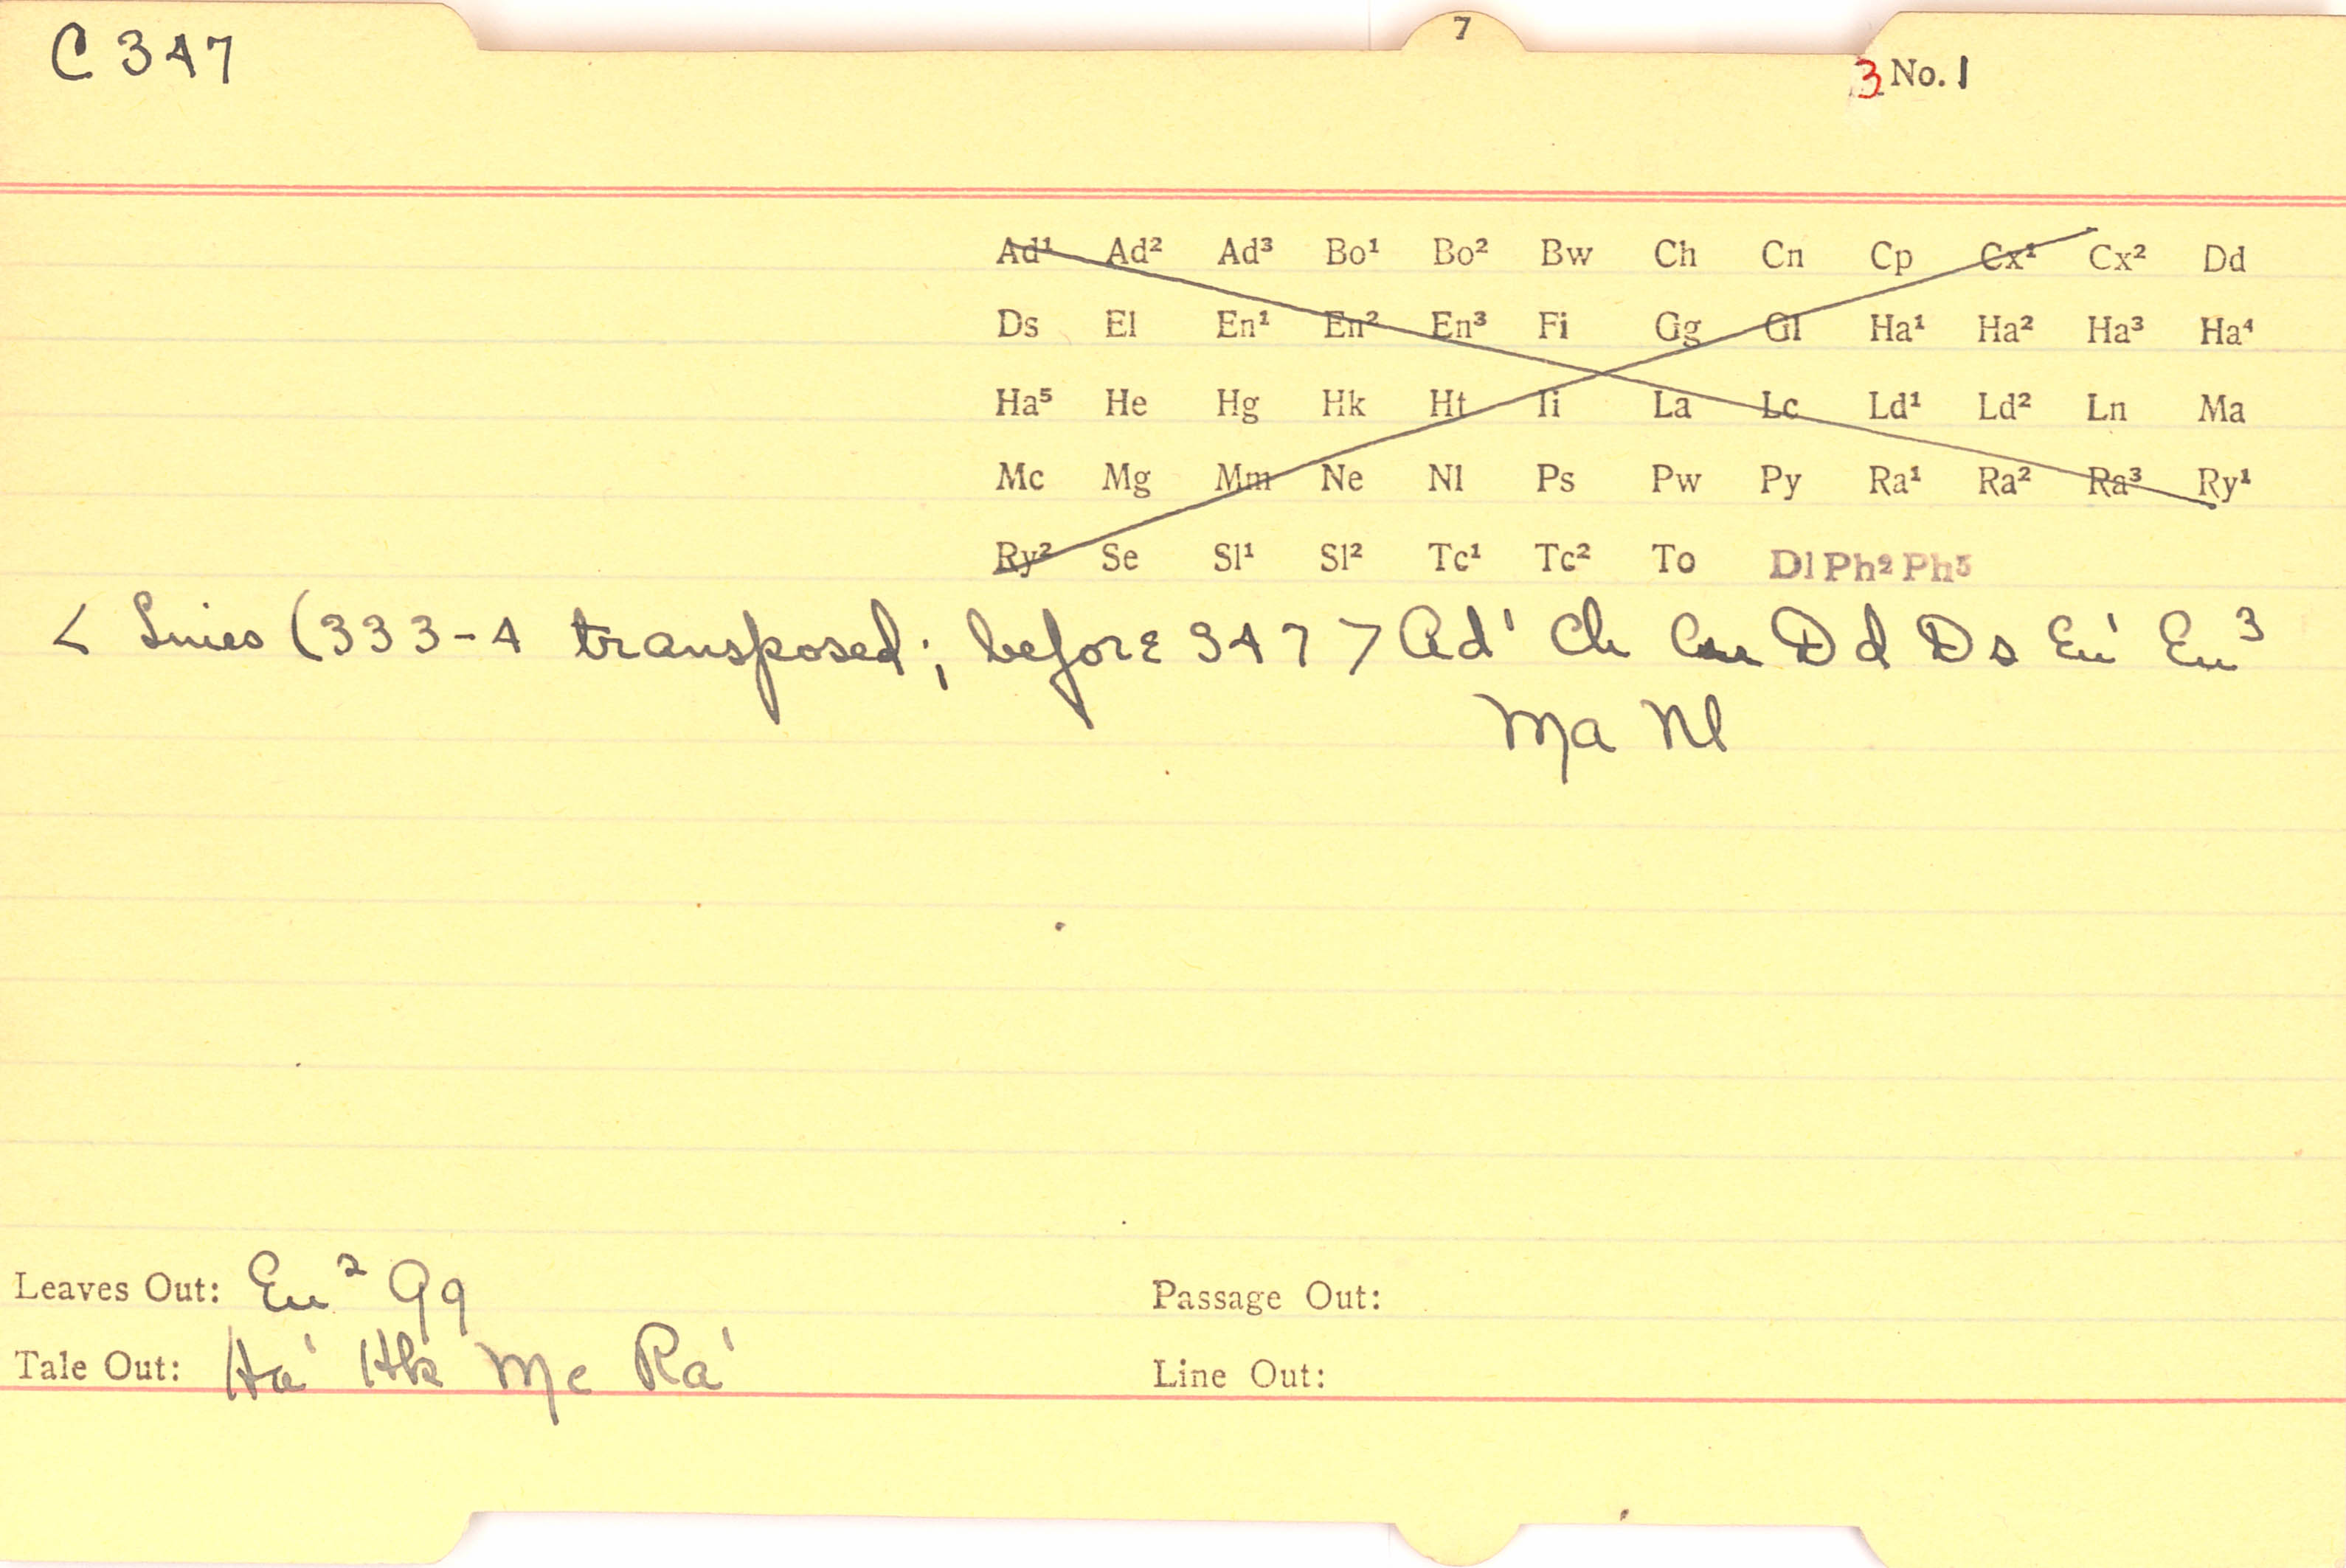 C 347
7
3 No. 1
Ad¹ Ad² Ad³ Bo¹ Bo² Bw Ch Cn Cp Cx¹ Cx² Dd
Ds El En¹ En² En³ Fi Gg Gl Ha¹ Ha² Ha³ Ha⁴
Ha⁵ He Hg Hk Ht Ii La Lc Ld¹ Ld² Ln Ma
Mc Mg Mm Ne Nl Ps Pw Py Ra¹ Ra² Ra³ Ry¹
Ry² Se Sl¹ Sl² Tc¹ Tc² To Dl Ph² Ph⁵
< Lines (333-4 transposed; before 347 > Ad¹ Ch Cn Dd Ds En¹ En³
Ma Nl
Leaves Out: En² Gg
Passage Out:
Tale Out: Ha¹ Hk Mc Ra¹
Line Out: